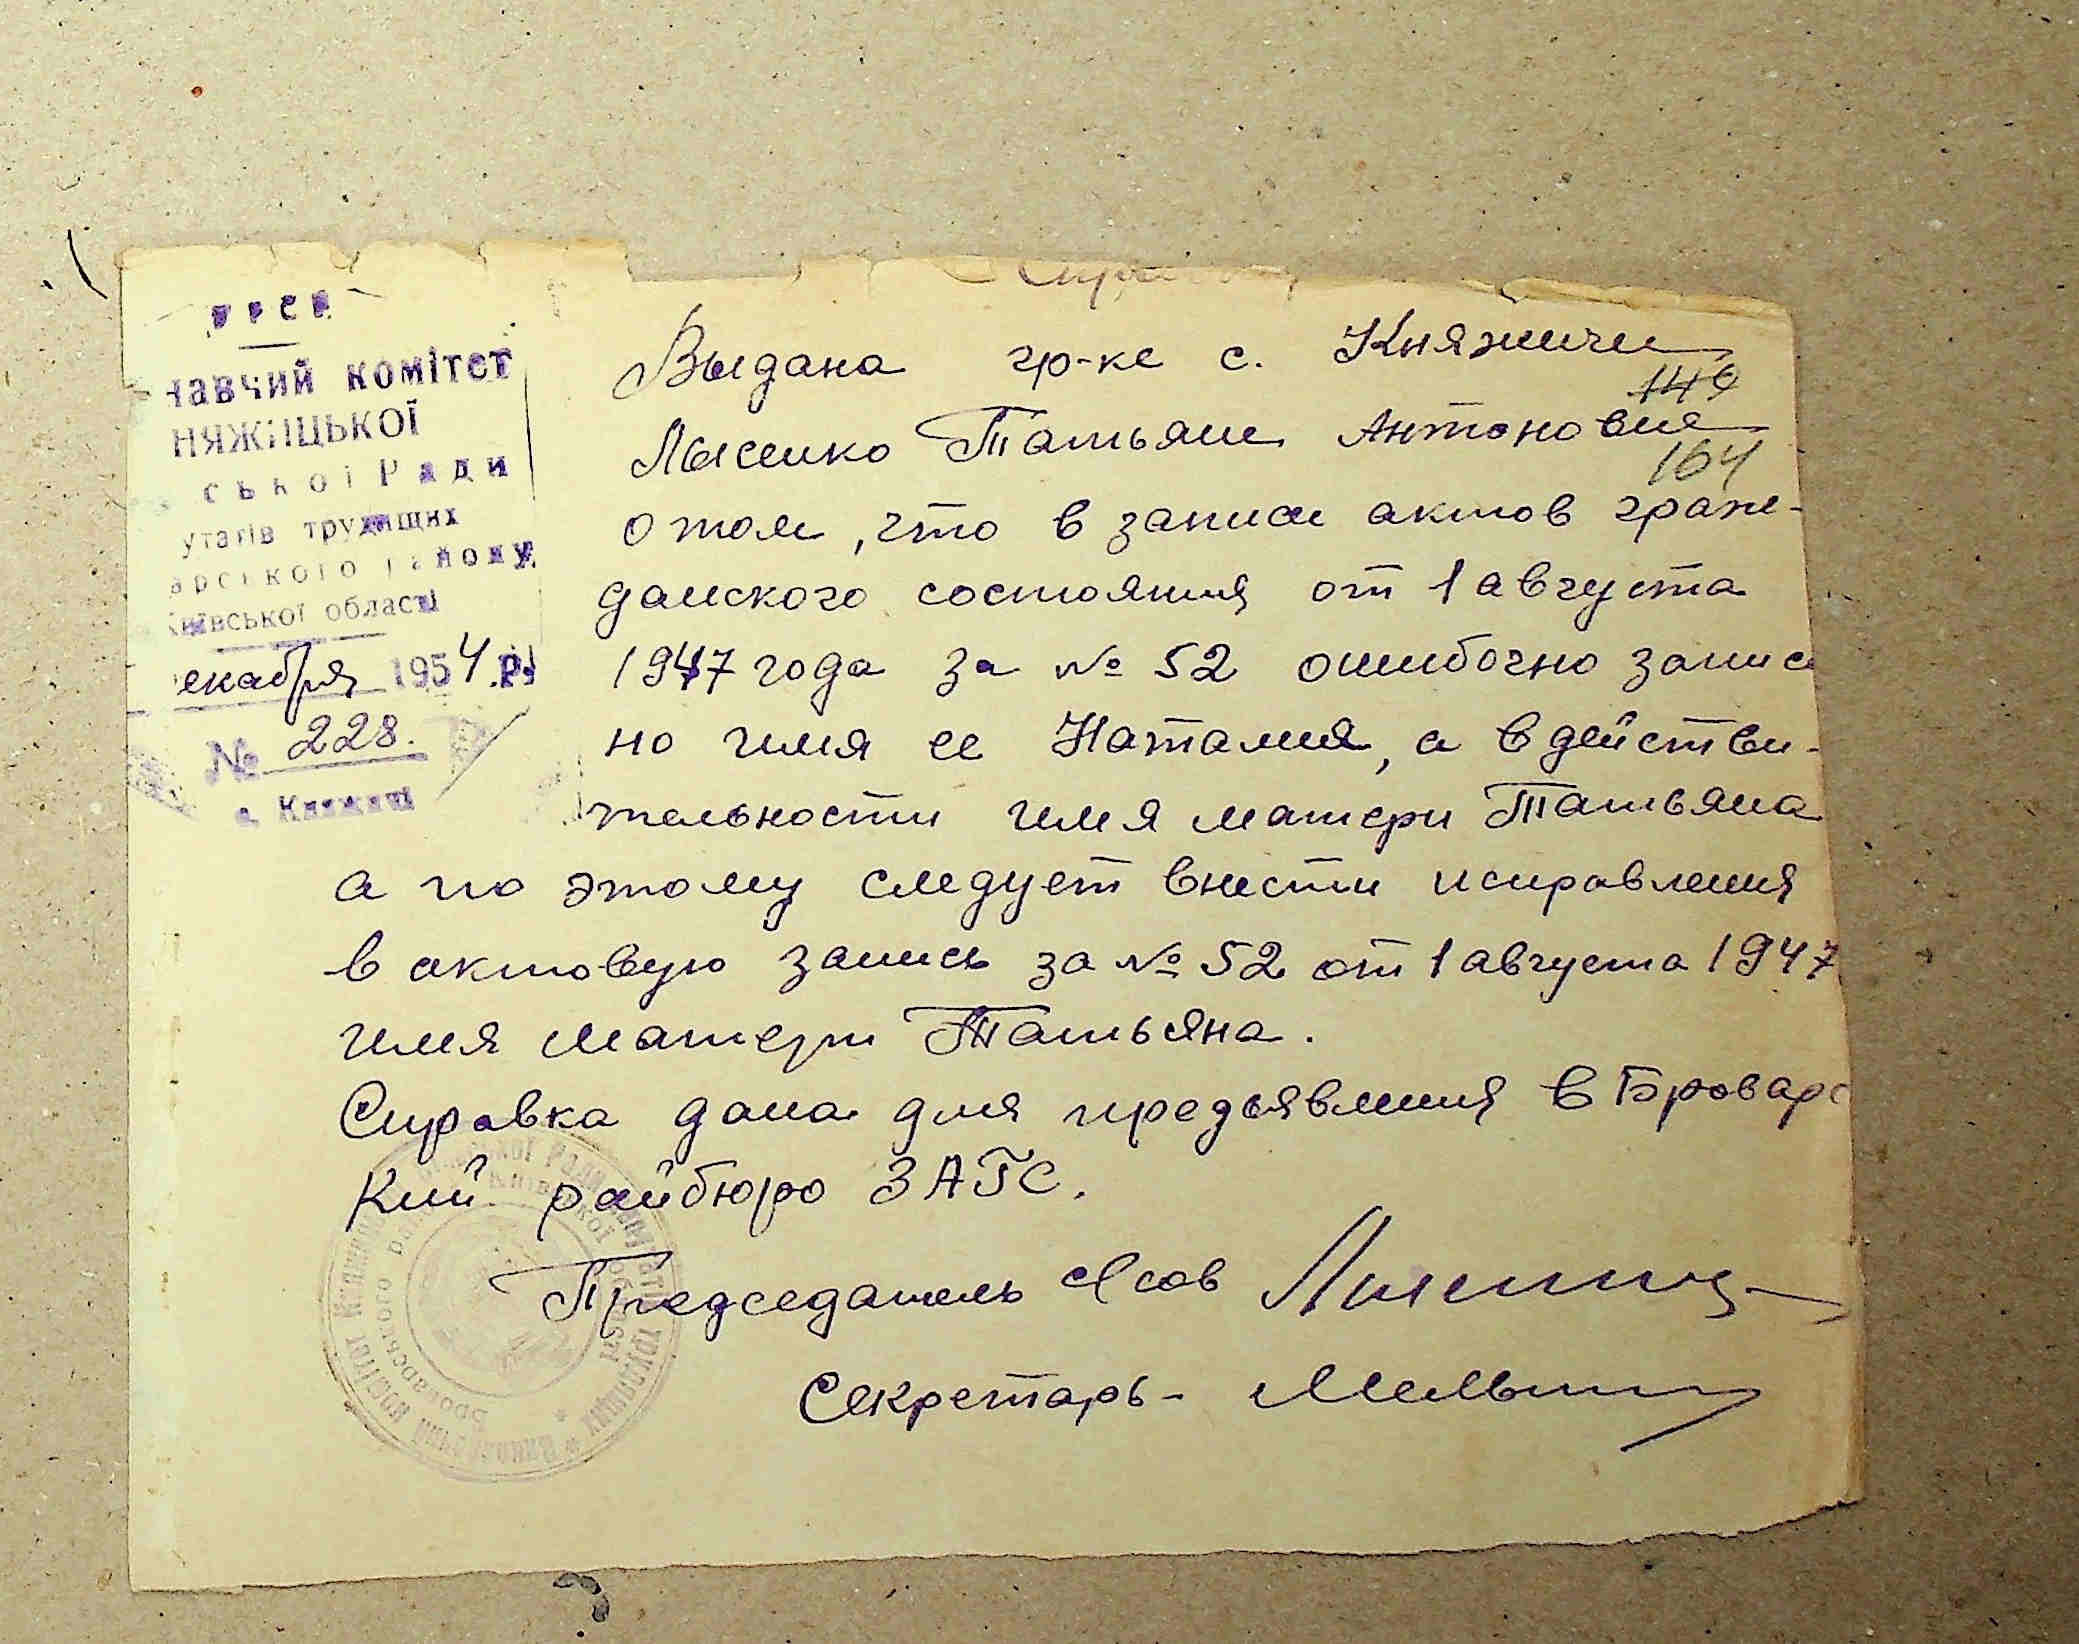 УРСР
навчий комітет
НЯЖИЦЬКОЇ
ської Ради
утатів трудящих
арського району
Київської області
екабря 1954 р.
№ 228.
с. Княжичі
Справка
Выдана гр-ке с. Княжичи
146
Лысенко Татьяне Антоновне
164
о том, что в записи актов граж-
данского состояния от 1 августа
1947 года за № 52 ошибочно записа
но имя ее Наталия, а в действи-
тельности имя матери Татьяна
а по этому следует внести исправления
в актовую запись за № 52 от 1 августа 1947
имя матери Татьяна.
Справка дана для предьявления в Броварс
кий райбюро ЗАГС.
Председатель с/сов
Секретарь -
Виконавчий комітет Княжицької Ради депутатів трудящих
Броварського району Київської області